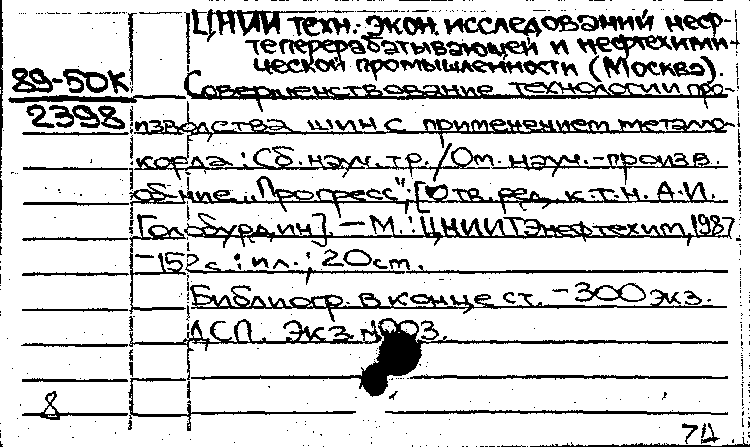 ЦНИИ техн.-экон. исследований неф-
теперерабатывающей и нефтехими-
ческой промышленности (Москва).
89-50К
2398
Совершенствование технологии про-
изводства шин с применением металло-
корда : Сб. науч. тр. / Ом. науч.-произв.
об-ние „Прогресс“; [Отв. ред. к.т.н. А.И.
Голобурдин]. – М. : ЦНИИТЭнефтехим, 1987
– 152 с. : ил. ; 20 см.
Библиогр. в конце ст. – 300 экз.
ДСП. Экз. №003.
8